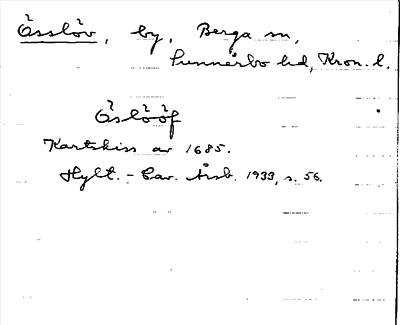 Össlöv, by, Berga sn,
Sunnerbo hd, Kron. l.
Óslóóf
Kartskiss av 1685.
Hylt.-Cav. Årsb. 1933, s. 56.